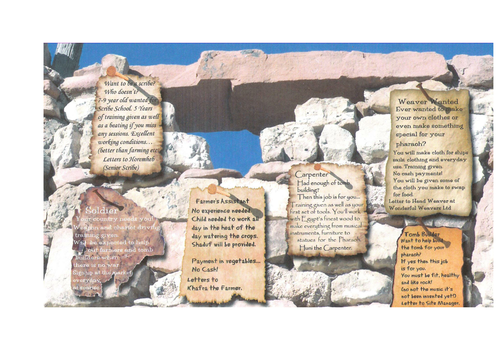 Want to be a scribe?
Who doesn't?
7-9 year old wanted for
Scribe School. 5 Years
of training given as well
as a beating if you miss
any sessions. Excellent
working conditions...
(better than farming etc)
Letters to Horemheb
(Senior Scribe)
Weaver Wanted
Ever wanted to make
your own clothes or
even make something
special for your
pharaoh?
You will make cloth for ships
sails clothing and everyday
use. Training given.
No cash payments!
You will be given some of
the cloth you make to swap
for food.
Letter to Head Weaver at
Wonderful Weavers Ltd
Carpenter
Had enough of tomb
building?
Then this job is for you...
Training given as well as your
first set of tools. You'll work
with Egypt's finest wood to
make everything from musical
instruments, furniture to
statues for the Pharaoh.
Hani the Carpenter.
Soldier
Your country needs you!
training given.
there is no war
Farmer's Assistant
No experience needed.
Child needed to work all
day in the heat of the
day watering the crops.
Shaduf will be provided.
Payment in vegetables...
No Cash!
Letters to
Khafra the Farmer.
Tomb Builder
Want to help build
the tomb for your
pharaoh?
If yes then this job
is for you.
You must be fit, healthy
and like rock!
(so not the music it's
not been invented yet!)
Letter to Site Manager.